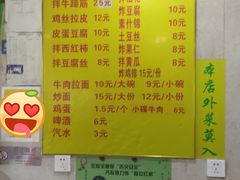 拌牛蹄筋 25元
鸡丝拉皮 12元
皮蛋豆腐 8元
拌西红柿 10元
拌豆腐丝 8元
炸豆腐 8元
素什锦 10元
土豆丝 8元
炸果仁 8元
拌黄瓜 8元
炸鸡排 15元/份
牛肉拉面 10元/大碗 9元/小碗
炒面 15元/大份 10元/份
鸡蛋 1.5元/个 小碟牛肉 6元
啤酒 6元
汽水 3元
本店外菜莫入